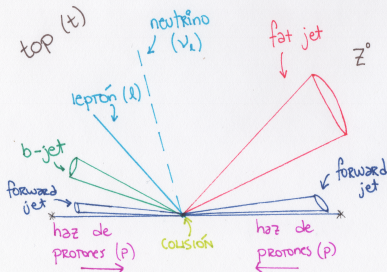 top (t)
neutrino
(νℓ)
fat jet
Z°
leptón (ℓ)
b-jet
forward
jet
forward
jet
haz de
protones (p)
COLISIÓN
haz de
protones (p)